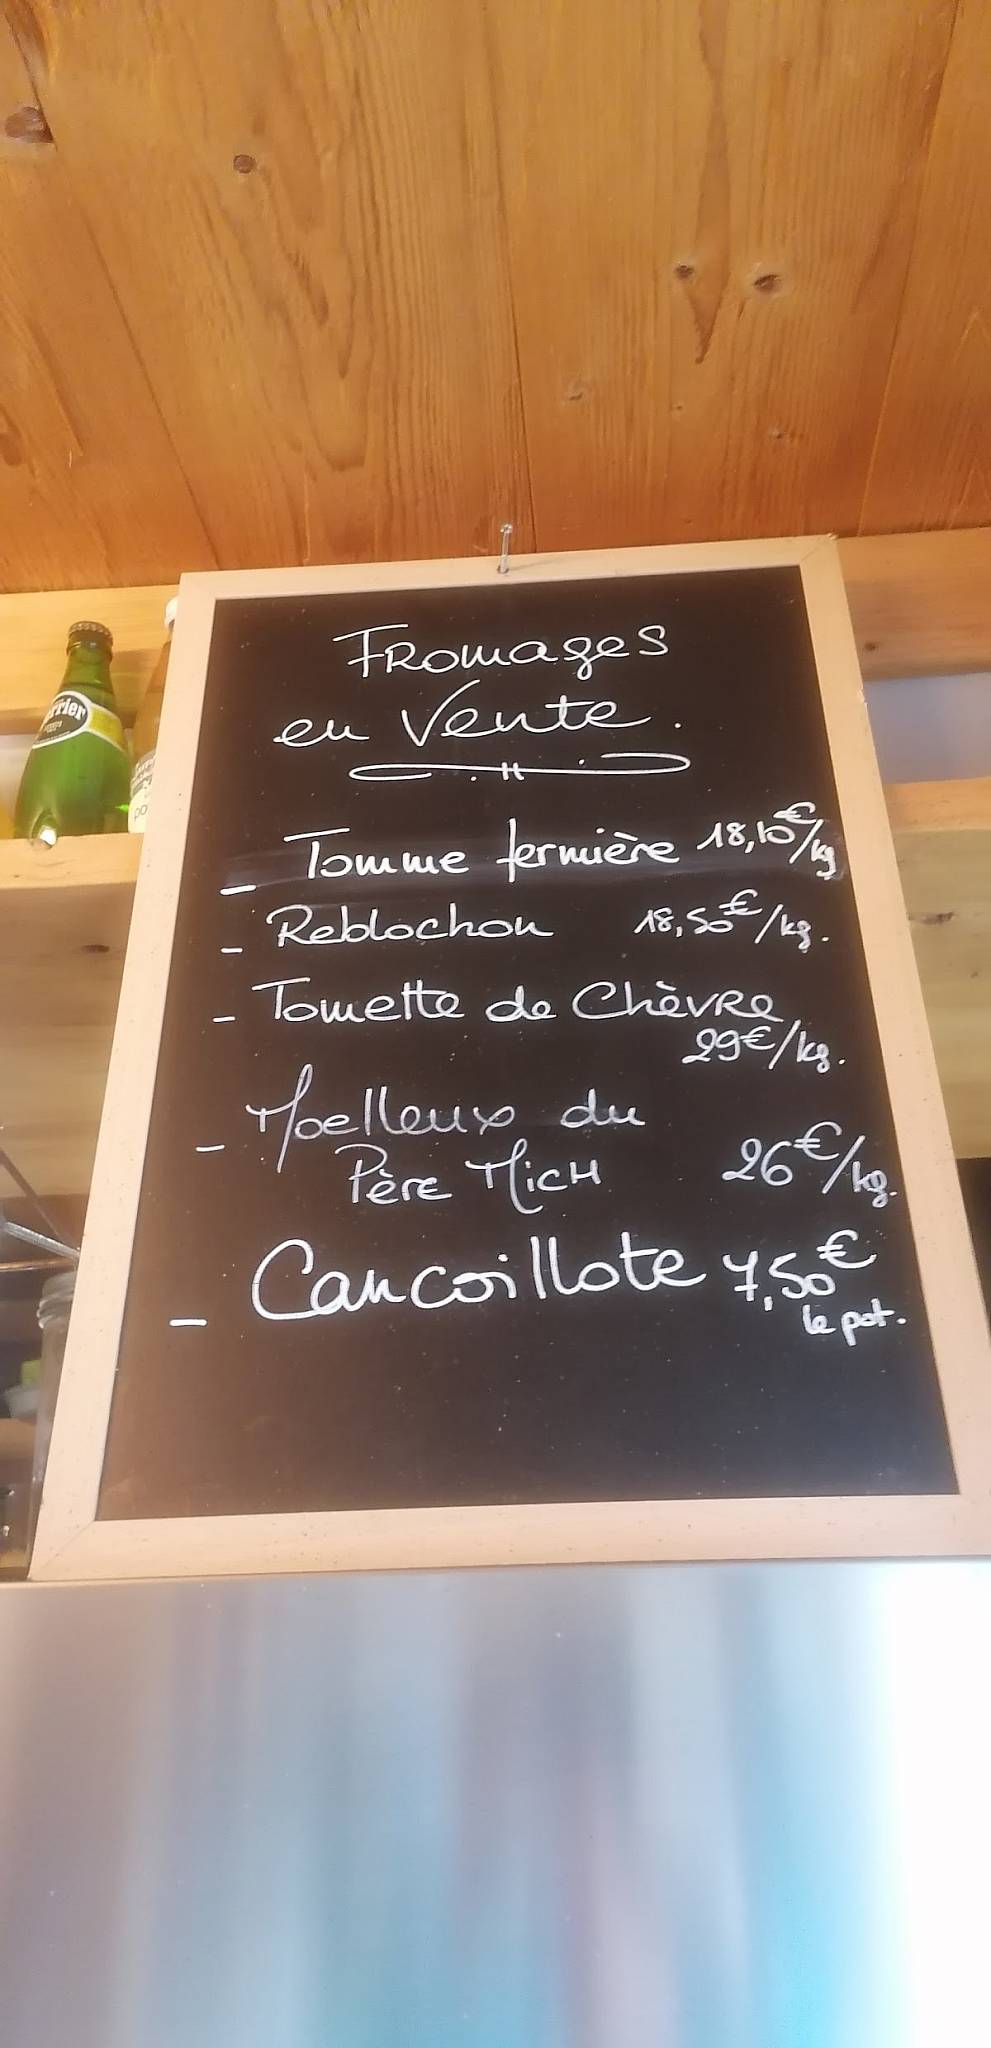 Fromages
en Vente.
- Tomme fermière 18,10€/kg
- Reblochon 18,50€/kg.
- Tomette de Chèvre
29€/kg.
- Moelleux du
Père Mich 26€/kg.
- Cancoillote 7,50€
le pot.